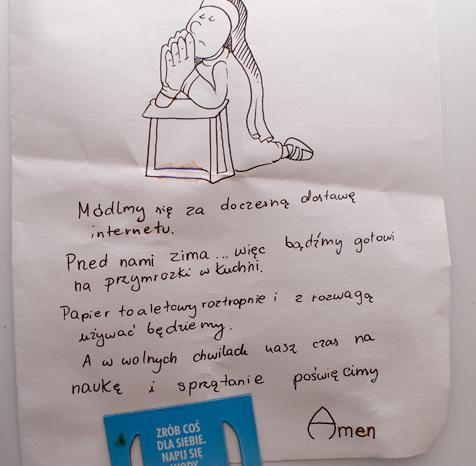 Módlmy się za doczesną dostawę
internetu.
Przed nami zima... więc bądźmy gotowi
na przymrozki w kuchni.
Papier toaletowy roztropnie i z rozwagą
używać będziemy.
A w wolnych chwilach nasz czas na
naukę i sprzątanie poświęcimy
Amen
ZRÓB COŚ
DLA SIEBIE.
NAPIJ SIĘ
WODY